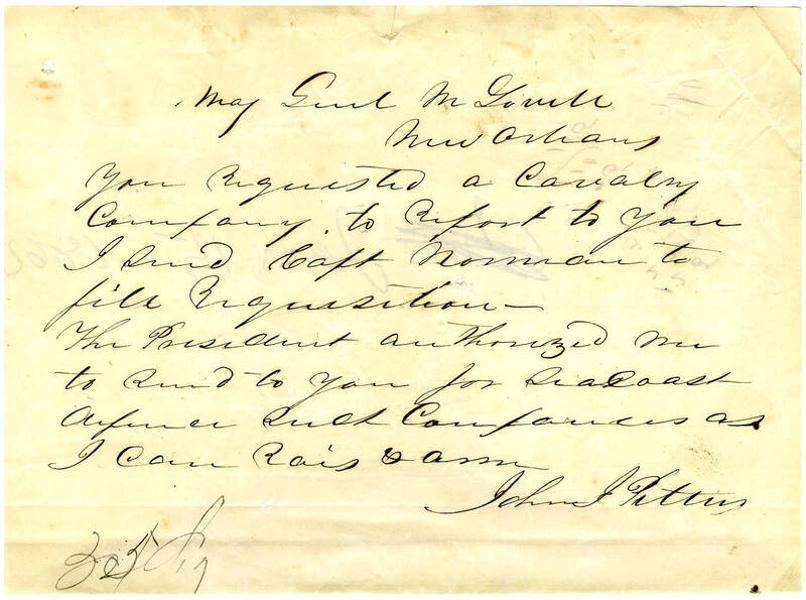 Maj Genl M Lovell
New Orleans
You Requested a Cavalry
Company to Report to You
I send Capt Norman to
fill Requisition—
The President authorized me
to send to you for Seacoast
defence such Companies as
I can Rais & arm
John J Pettus